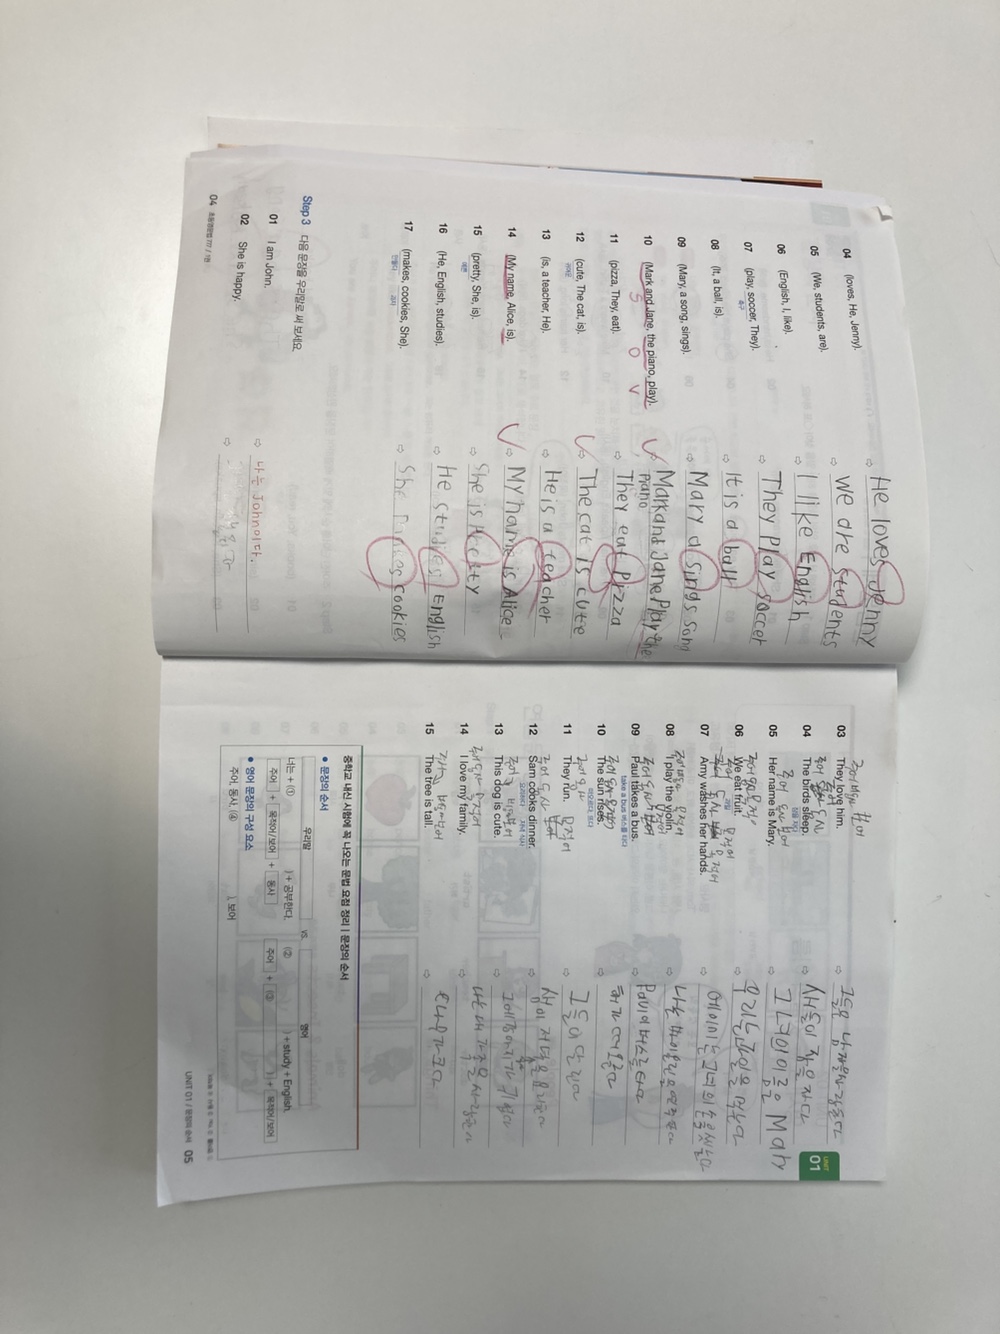 04 (loves, He, Jenny). ⇨ He loves Jenny
05 (We, students, are). ⇨ We are students
06 (English, I, like). ⇨ I like English
07 (play, soccer, They). ⇨ They Play soccer
축구
08 (It, a ball, is). ⇨ It is a ball
09 (Mary, a song, sings). ⇨ Mary a sings song
10 (Mark and Jane, the piano, play). ⇨ Mark and Jane Play the
Piano
11 (pizza, They, eat). ⇨ They eat Pizza
12 (cute, The cat, is). ⇨ The cat is cute
귀여운
13 (is, a teacher, He). ⇨ He is a teacher
14 (My name, Alice, is). ⇨ My name is Alice
15 (pretty, She, is). ⇨ She is
예쁜
16 (He, English, studies). ⇨ He studies English
17 (makes, cookies, She). ⇨ She cookies
만들다 과자
Step 3 다음 문장을 우리말로 써 보세요.
01 I am John. ⇨ 나는 John이다.
02 She is happy. ⇨
04
UNIT 01
주어 동사
03 They love him. ⇨ 그들은 남자를 사랑한다
주어 동사
04 The birds sleep. ⇨ 새들이 잠을 자다
잠을 자다
주어 동사 보어
05 Her name is Mary. ⇨ 그녀의 이름은 Mary
주어 동사 목적어
06 We eat fruit. ⇨ 우리는 과일을 먹는다
과일
동사 목적어
07 Amy washes her hands. ⇨ 에이미는 그녀의 손을 씻는다
주어 동사 목적어
08 I play the violin. ⇨ 나는 바이올린을 연주한다
주어 동사 목적어
09 Paul takes a bus. ⇨ 버스를 타다
take a bus 버스를 타다
주어 동사
10 The sun rises. ⇨ 해가 떠올랐다
주어 동사
11 They run. ⇨ 그들이 달린다
주어 동사 목적어
12 Sam cooks dinner. ⇨ 샘이 저녁을 요리한다
요리하다 저녁 식사
주어
13 This dog is cute. ⇨ 귀엽다
주어 동사 목적어
14 I love my family. ⇨ 나는 내 가족을 사랑한다
15 The tree is tall. ⇨ 나무가 크다
중학교 내신 시험에 꼭 나오는 문법 요점 정리 | 문장의 순서
● 문장의 순서
우리말 vs. 영어
너는 + (① ) + 공부한다. (② ) + study + English.
주어 + 목적어/보어 + 동사 주어 + (③ ) + 목적어/보어
● 영어 문장의 구성 요소
주어, 동사, (④ ), 보어
UNIT 01 / 문장의 순서 05